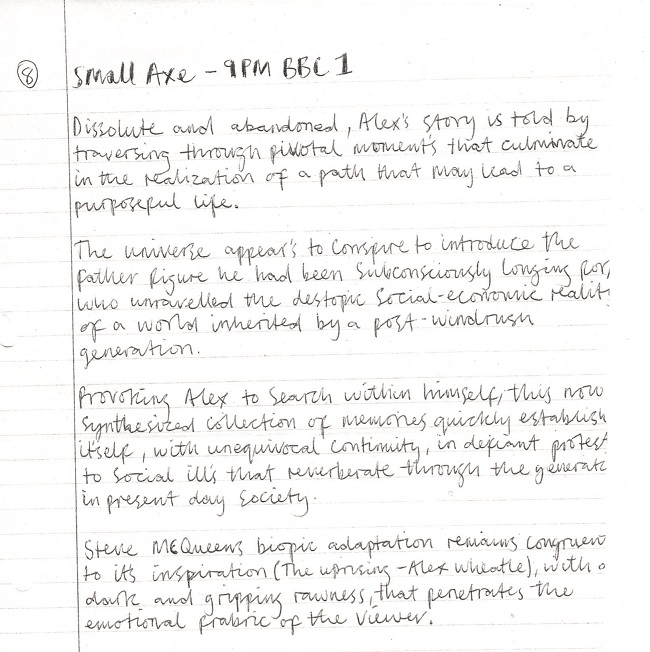 8 Small Axe - 9PM BBC 1
Dissolute and abandoned, Alex's story is told by
traversing through pivotal moments that culminate
in the realization of a path that may lead to a
purposeful life.
The universe appear's to conspire to introduce the
father figure he had been subconsciously longing for,
who unravelled the destopic social-economic realit
of a world inherited by a post-windrush
generation.
Provoking Alex to search within himself, this now
synthesized collection of memories quickly establish
itself, with unequivocal continuity, in defiant protest
to social ill's that reverberate through the generat
in present day society.
Steve McQueens biopic adaptation remains congruen
to its inspiration (The uprising - Alex wheatle), with a
dark and gripping rawness, that penetrates the
emotional frabric of the viewer.